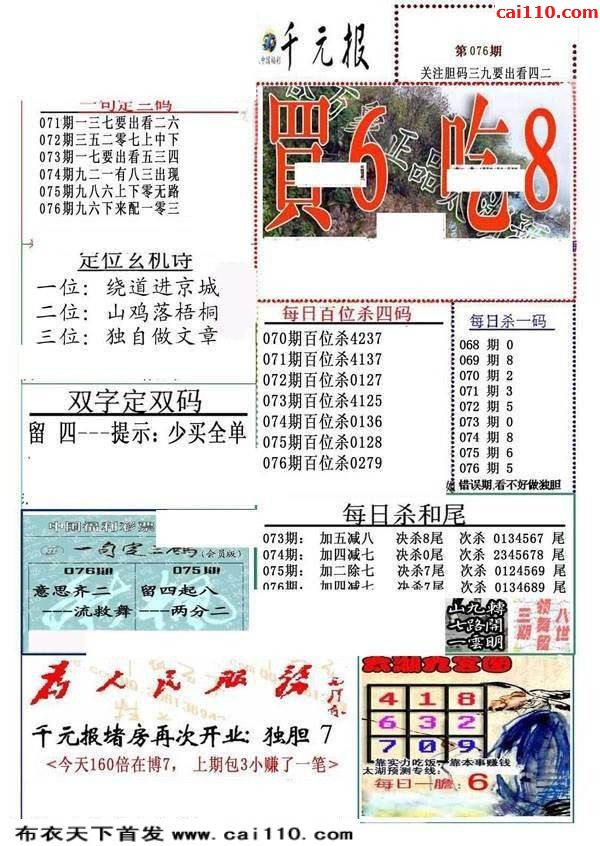 cai110.com
千元报
第076期
关注胆码三九要出看四二
一句定三码
071期一三七要出看二六
072期三五二零七上中下
073期一七要出看五三四
074期九二一有八三出现
075期九八六上下零无路
076期九六下来配一零三
買6 吃8
定位玄机诗
一位：绕道进京城
二位：山鸡落梧桐
三位：独自做文章
每日百位杀四码
070期百位杀4237
071期百位杀4137
072期百位杀0127
073期百位杀4125
074期百位杀0136
075期百位杀0128
076期百位杀0279
每日杀一码
068 期 0
069 期 8
070 期 2
071 期 3
072 期 5
073 期 0
074 期 8
075 期 6
076 期 5
错误期,看不好做独胆
双字定双码
留 四---提示：少买全单
每日杀和尾
073期： 加五减八 决杀8尾 次杀 0134567 尾
074期： 加四减七 决杀0尾 次杀 2345678 尾
075期： 加二除七 决杀7尾 次杀 0124569 尾
076期： 加四减七 决杀7尾 次杀 0134689 尾
中国福利彩票
一句定三码(会员版)
076期 075期
意思齐二 留四起八
---流救舞 ---两分二
山九轉
七路開
一雲明
八世
领舞留
三期
为人民服务
千元报堵房再次开业：独胆 7
<今天160倍在博7， 上期包3小赚了一笔>
太湖九宫图
4 1 8
6 3 2
7 0 9
靠实力吃饭，靠本事赚钱
太湖预测专线：
每日一胆：6
布衣天下首发 www.cai110.com